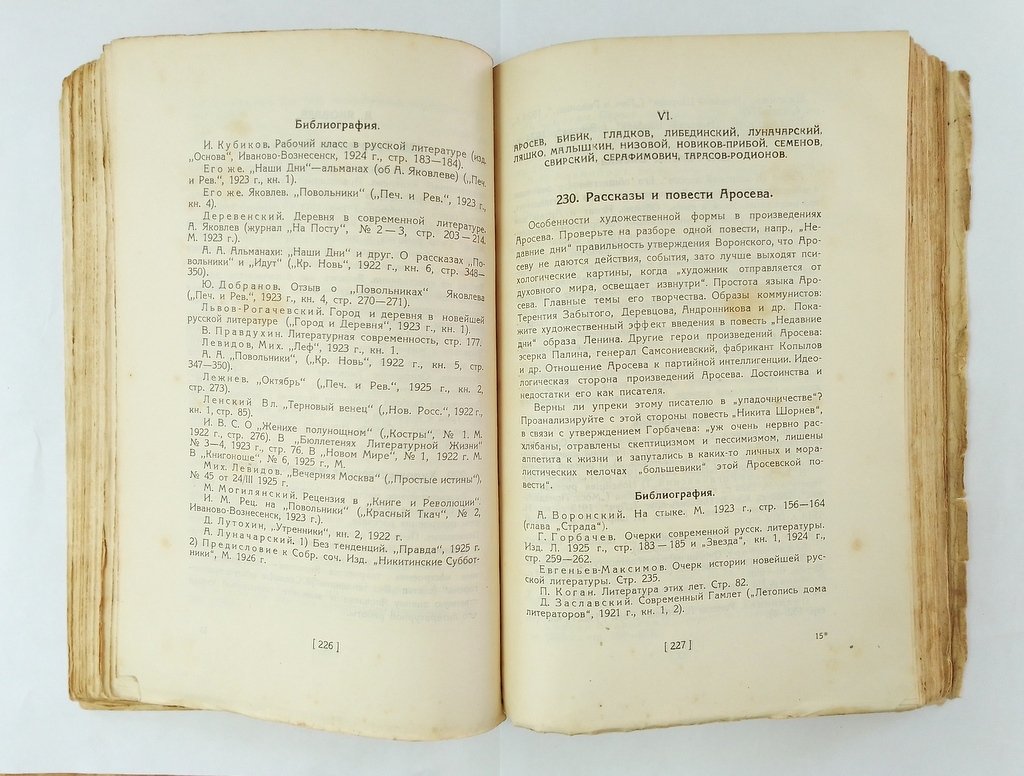 Библиография.
И. Кубиков. Рабочий класс в русской литературе (изд.
„Основа“, Иваново-Вознесенск, 1924 г., стр. 183—184).
Его же. „Наши Дни“—альманах (об А. Яковлеве) („Печ.
и Рев.“, 1923 г., кн. 1).
Его же. Яковлев. „Повольники“ („Печ. и Рев.“, 1923 г.,
кн. 4).
Деревенский. Деревня в современной литературе.
А. Яковлев (журнал „На Посту“, № 2—3, стр. 203—214.
М. 1923 г.).
А. А. Альманахи: „Наши Дни“ и друг. О рассказах „По-
вольники“ и „Идут“ („Кр. Новь“, 1922 г., кн. 6, стр. 348—
350).
Ю. Добранов. Отзыв о „Повольниках“ Яковлева
(„Печ. и Рев.“, 1923 г., кн. 4, стр. 270—271).
Львов-Рогачевский. Город и деревня в новейшей
русской литературе („Город и Деревня“, 1923 г., кн. 1).
В. Правдухин. Литературная современность, стр. 177.
Левидов, Мих. „Леф“, 1923 г., кн. 1.
А. А. „Повольники“, („Кр. Новь“, 1922 г., кн. 5, стр.
347—350).
Лежнев. „Октябрь“ („Печ. и Рев.“, 1925 г., кн. 2,
стр. 273).
Ленский Вл. „Терновый венец“ („Нов. Росс.“, 1922 г.,
кн. 1, стр. 85).
И. В. С. О „Женихе полунощном“ („Костры“, № 1. М.
1922 г., стр. 276). В „Бюллетенях Литературной Жизни“
№ 3—4, 1923 г., стр. 76. В „Новом Мире“, № 1, 1922 г. М.
В „Книгоноше“, № 6, 1925 г., М.
Мих. Левидов. „Вечерняя Москва“ („Простые истины“),
№ 45 от 24/III 1925 г.
М. Могилянский. Рецензия в „Книге и Революции“.
И. М. Рец. на „Повольники“ („Красный Ткач“, № 2,
Иваново-Вознесенск, 1923 г.).
Д. Лутохин, „Утренники“, кн. 2, 1922 г.
А. Луначарский. 1) Без тенденций. „Правда“, 1925 г.
2) Предисловие к Собр. соч. Изд. „Никитинские Суббот-
ники“, М. 1926 г.
[ 226 ]
VI.
АРОСЕВ, БИБИК, ГЛАДКОВ, ЛИБЕДИНСКИЙ, ЛУНАЧАРСКИЙ,
ЛЯШКО, МАЛЫШКИН, НИЗОВОЙ, НОВИКОВ-ПРИБОЙ, СЕМЕНОВ,
СВИРСКИЙ, СЕРАФИМОВИЧ, ТАРАСОВ-РОДИОНОВ.
230. Рассказы и повести Аросева.
Особенности художественной формы в произведениях
Аросева. Проверьте на разборе одной повести, напр., „Не-
давние дни“ правильность утверждения Воронского, что Аро-
севу не даются действия, события, зато лучше выходят пси-
хологические картины, когда „художник отправляется от
духовного мира, освещает извнутри“. Простота языка Аро-
сева. Главные темы его творчества. Образы коммунистов:
Терентия Забытого, Деревцова, Андронникова и др. Пока-
жите художественный эффект введения в повесть „Недавние
дни“ образа Ленина. Другие герои произведений Аросева:
эсерка Палина, генерал Самсониевский, фабрикант Копылов
и др. Отношение Аросева к партийной интеллигенции. Идео-
логическая сторона произведений Аросева. Достоинства и
недостатки его как писателя.
Верны ли упреки этому писателю в „упадочничестве“?
Проанализируйте с этой стороны повесть „Никита Шорнев“,
в связи с утверждением Горбачева: „уж очень нервно рас-
хлябаны, отравлены скептицизмом и пессимизмом, лишены
аппетита к жизни и запутались в каких-то личных и мора-
листических мелочах „большевики“ этой Аросевской по-
вести“.
Библиография.
А. Воронский. На стыке. М. 1923 г., стр. 156—164
(глава „Страда“).
Г. Горбачев. Очерки современной русск. литературы.
Изд. Л. 1925 г., стр. 183—185 и „Звезда“, кн. 1, 1924 г.,
стр. 259—262.
Евгеньев-Максимов. Очерк истории новейшей рус-
ской литературы. Стр. 235.
П. Коган. Литература этих лет. Стр. 82.
Д. Заславский. Современный Гамлет („Летопись дома
литераторов“, 1921 г., кн. 1, 2).
[ 227 ]
15*